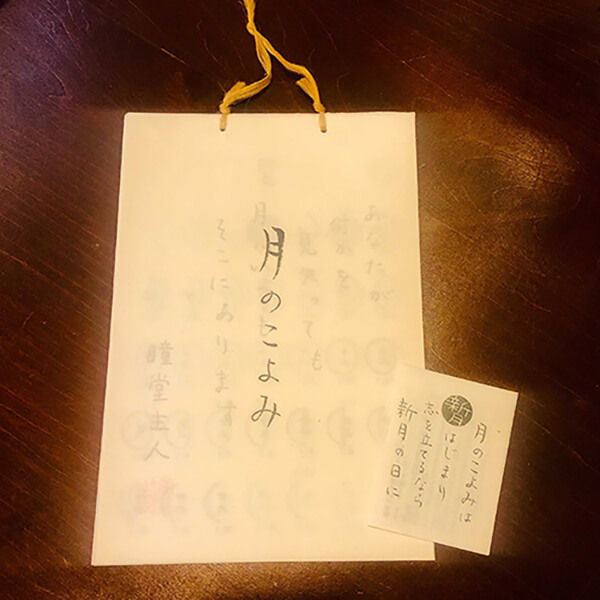 月のこよみ
あなたが
何かを
見失っても
月はいつも
そこにあります
瞳堂主人
月のこよみは
新月はじまり
志を立てるなら
新月の日に